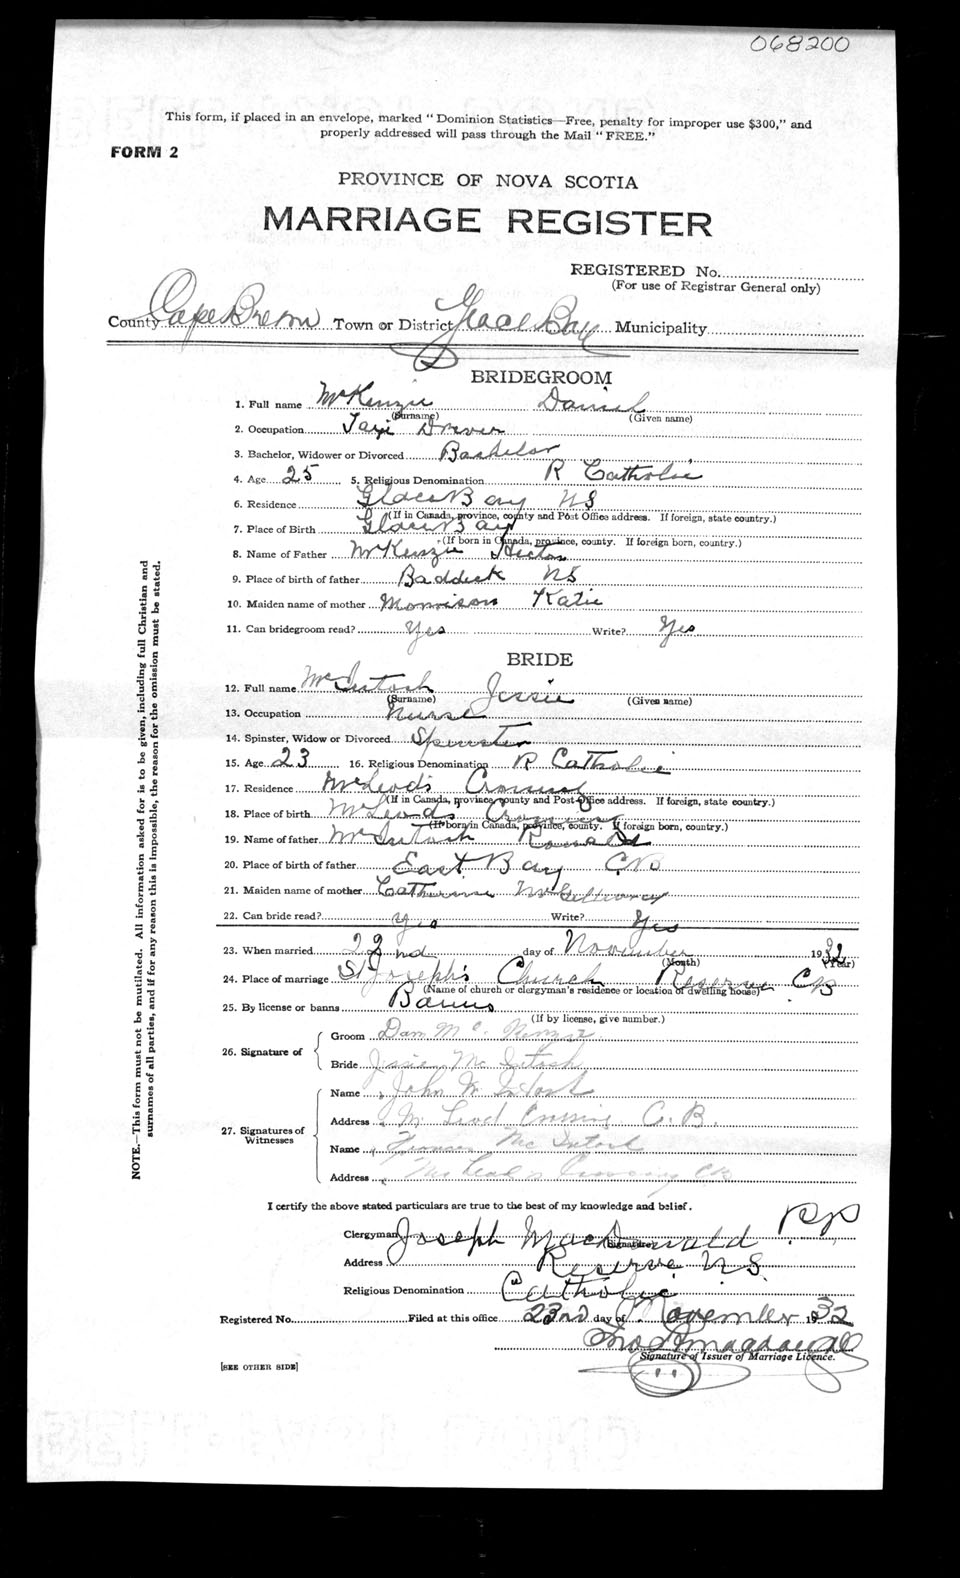 068200
This form, if placed in an envelope, marked "Dominion Statistics—Free, penalty for improper use $300," and
properly addressed will pass through the Mail "FREE."
FORM 2
PROVINCE OF NOVA SCOTIA
MARRIAGE REGISTER
REGISTERED No.
(For use of Registrar General only)
County Cape Breton Town or District Glace Bay Municipality
BRIDEGROOM
1. Full name McKenzie Daniel
(Surname) (Given name)
2. Occupation Taxi Driver
3. Bachelor, Widower or Divorced Bachelor
4. Age 25 5. Religious Denomination R Catholic
6. Residence Glace Bay NS
(If in Canada, province, county and Post Office address. If foreign, state country.)
7. Place of Birth Glace Bay
(If born in Canada, province, county. If foreign born, country.)
8. Name of Father McKenzie Hector
9. Place of birth of father Baddeck NS
10. Maiden name of mother Morrison Katie
11. Can bridegroom read? Yes Write? Yes
BRIDE
12. Full name McIntosh Jessie
(Surname) (Given name)
13. Occupation Nurse
14. Spinster, Widow or Divorced Spinster
15. Age 23 16. Religious Denomination R Catholic
17. Residence McLeods Crossing
(If in Canada, province, county and Post Office address. If foreign, state country.)
18. Place of birth McLeods Crossing
(If born in Canada, province, county. If foreign born, country.)
19. Name of father McIntosh Ronald
20. Place of birth of father East Bay CB
21. Maiden name of mother Catherine
22. Can bride read? Yes Write? Yes
23. When married 22nd day of November 1932
(Month) (Year)
24. Place of marriage St Joseph's Church Reserve CB
(Name of church or clergyman's residence or location of dwelling house)
25. By license or banns Banns
(If by license, give number.)
26. Signature of
Groom Dan McKenzie
Bride Jessie McIntosh
27. Signatures of Witnesses
Name John McIntosh
Address McLeod Crossing C.B.
Name McIntosh
Address McLeod's Crossing CB
I certify the above stated particulars are true to the best of my knowledge and belief.
Clergyman Joseph MacDonald P.P.
(Signature)
Address Reserve N.S.
Religious Denomination Catholic
Registered No. Filed at this office 23nd day of November 1932
Signature of Issuer of Marriage Licence.
[SEE OTHER SIDE]
NOTE.—This form must not be mutilated. All information asked for is to be given, including full Christian and
surnames of all parties, and if for any reason this is impossible, the reason for the omission must be stated.